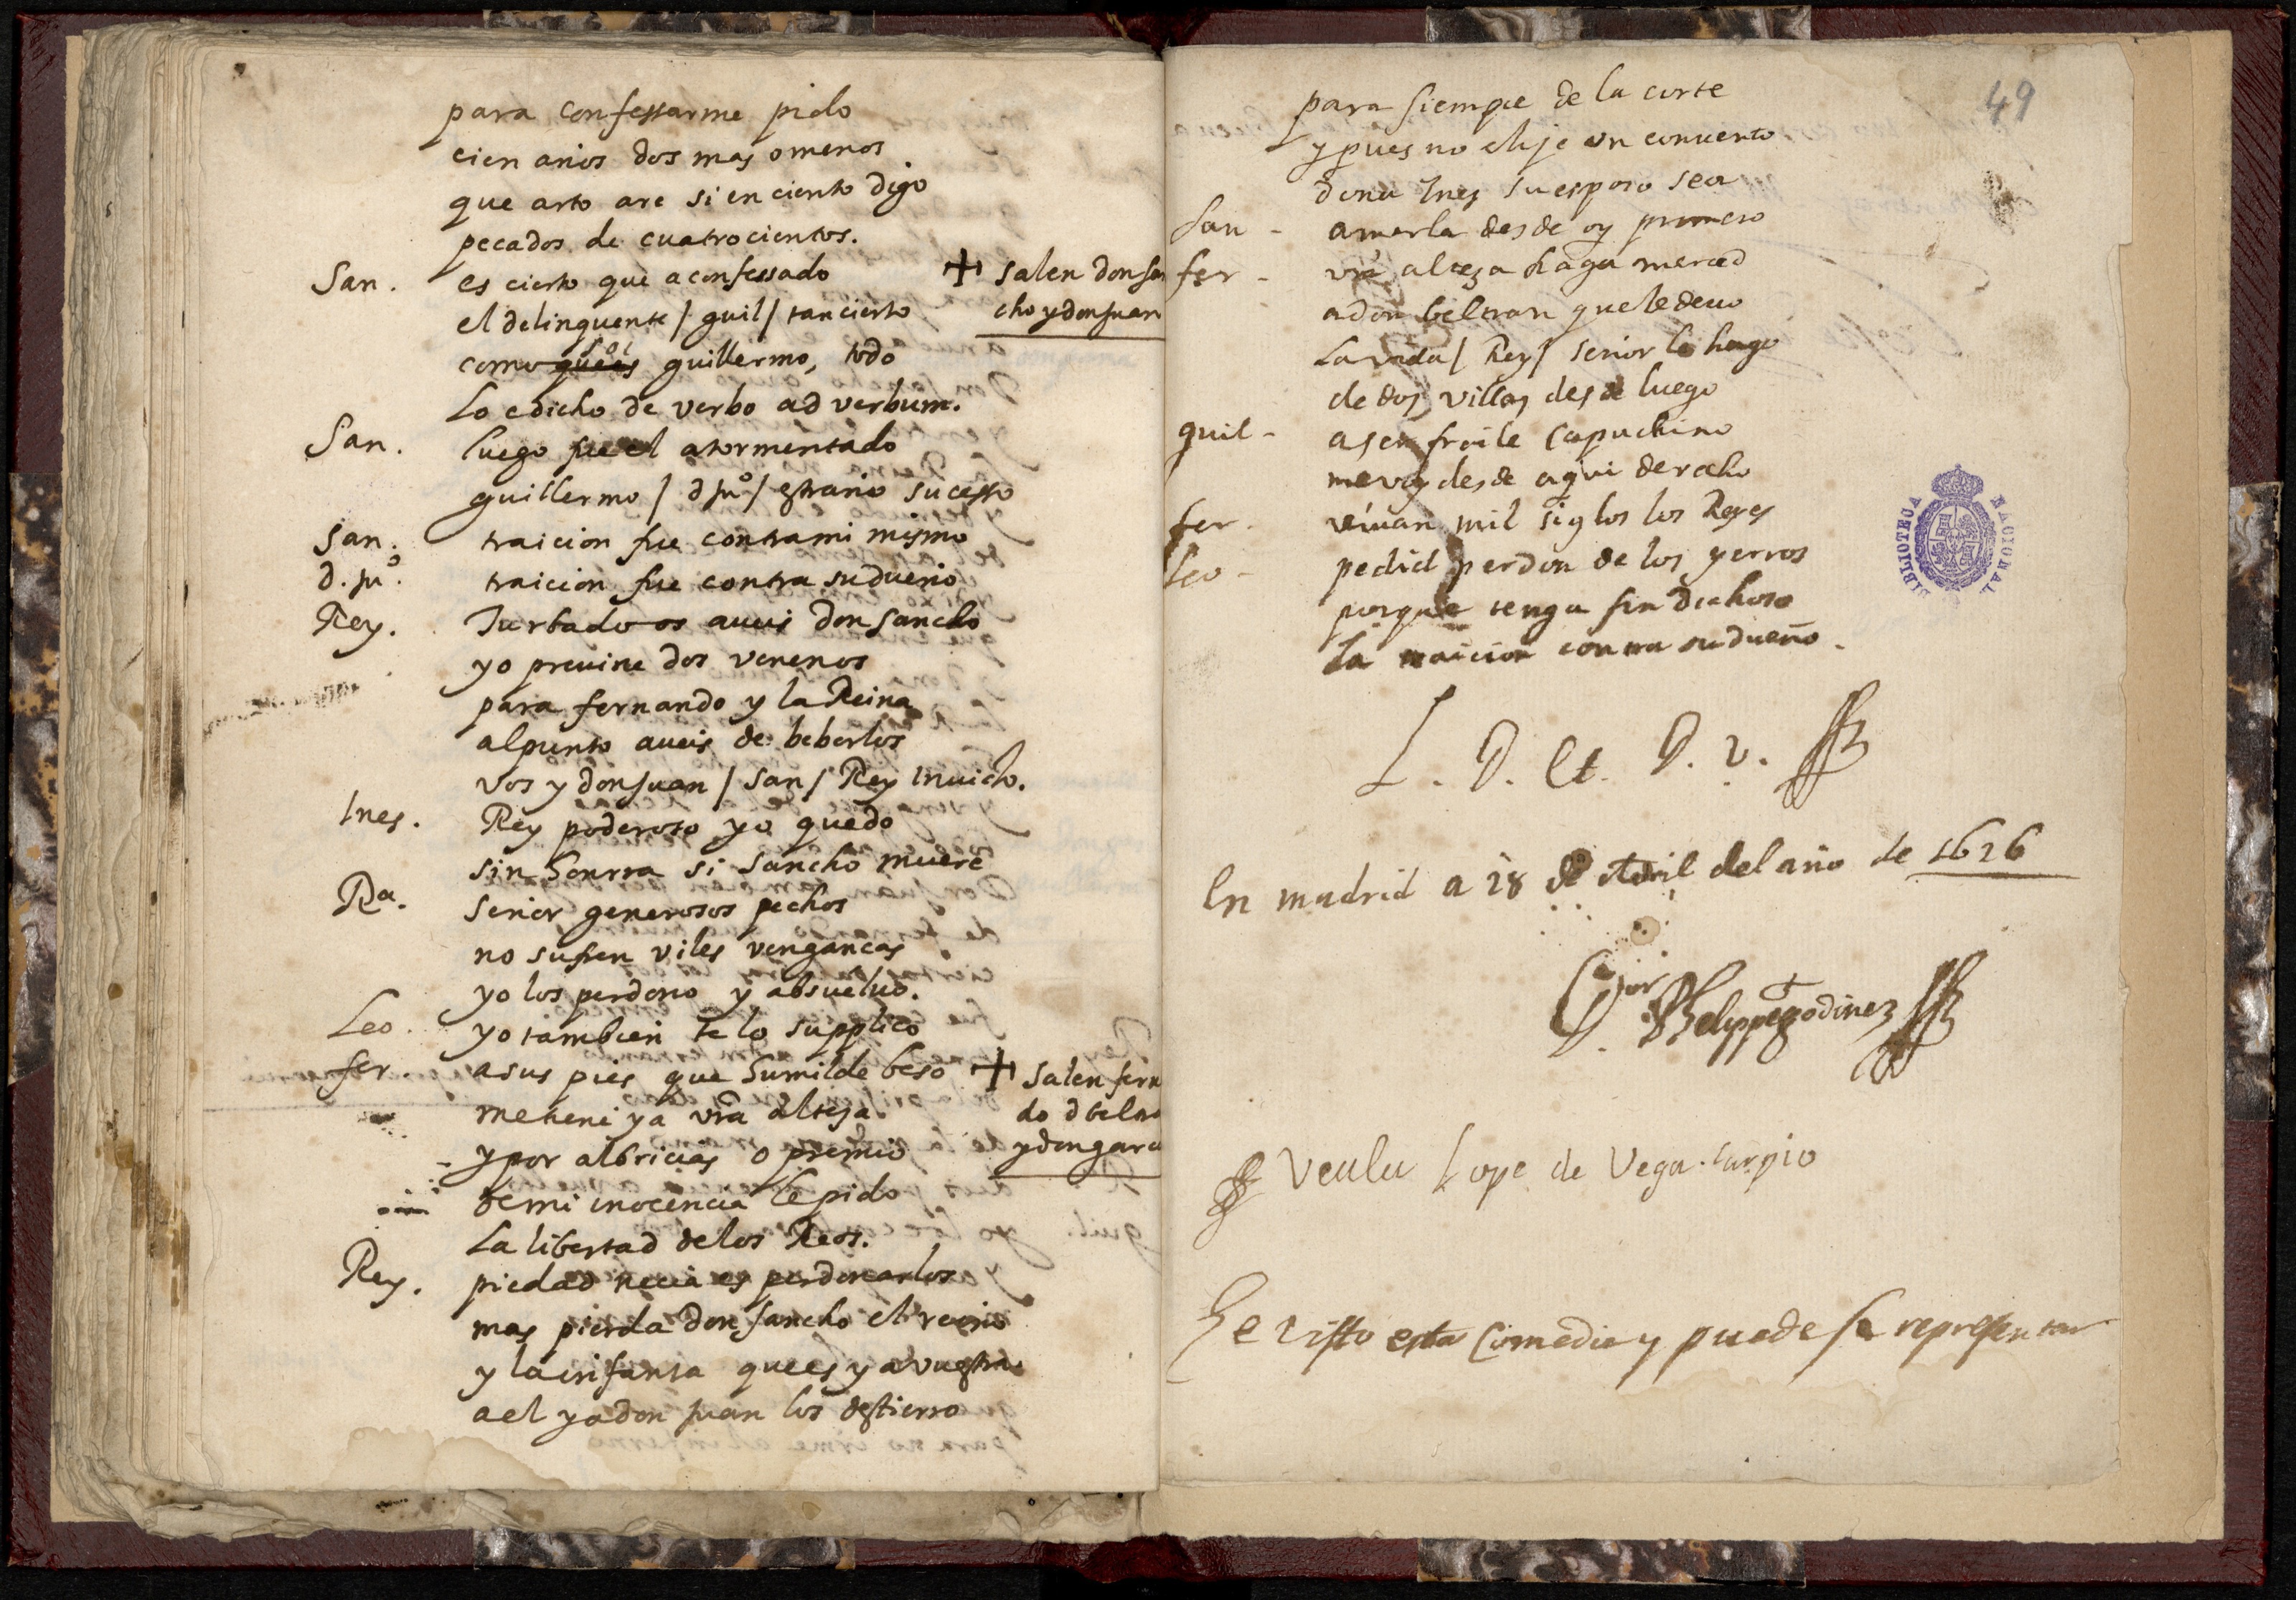 para confessarme pido
cien años dos mas o menos
que arto are si en ciento digo
pecados de cuatrocientos.
San. es cierto que a confessado
+ salen don san
cho y don juan
el delinquente / guil / tan cierto
como soi guillermo, todo
lo e dicho de verbo ad verbum.
San. luego fue el atormentado
guillermo / d juº / estraño sucesso
San. traicion fue contra mi mismo
d. juº. traicion fue contra su dueño
Rey. Turbado os aueis don sancho
yo preuine dos venenos
para fernando y la Reina
al punto aueis de beberlos
vos y don juan / san / Rey inuicto.
Ines. Rey poderoso yo quedo
sin honrra si sancho muere
Ra. señor generosos pechos
no sufren viles vengancas
yo los perdono y absueluo.
Leo. yo tambien te lo supplico
fer. a sus pies que humilde beso
+ salen fern
do d beltra
y don garci
me tiene ya vra alteza
y por albricias o premio
de mi inocencia le pido
la libertad de los Reos.
Rey. piedad necia es perdonarlos
mas pierda don sancho el reino
y la infanta que es ya vuestra
a el y a don juan los destierro
49
para siempre de la corte
y pues no elije un conuento
dona Ines su esposo sea
san - amarla desde oy prometo
fer - vra alteza haga merced
a don beltran que le deuo
la vida / Rey / señor le hago
de dos villas desde luego
guil - a ser fraile capuchino
me voy desde aqui derecho
fer. viuan mil siglos los Reyes
leo - pedid perdon de los yerros
porque tenga fin dichoso
la traicion contra su dueño.
L. D. et. D. V.
En madrid a 28 de Abril del año de 1626
Felippe godinez
Veala Lope de Vega Carpio
He visto esta comedia y puede se representar
BIBLIOTECA NACIONAL